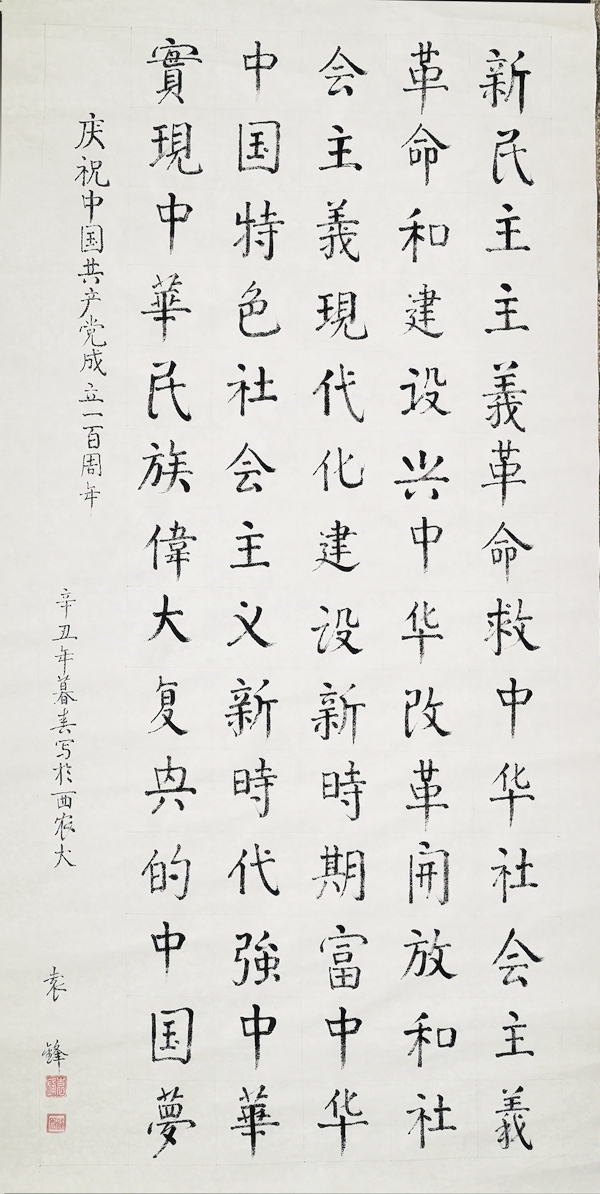 新民主主義革命救中华社会主義
革命和建设兴中华改革開放和社
会主義現代化建设新時期富中华
中国特色社会主义新時代強中華
實現中華民族偉大复兴的中国夢
庆祝中国共产党成立一百周年
辛丑年暮春写於西农大
袁锋